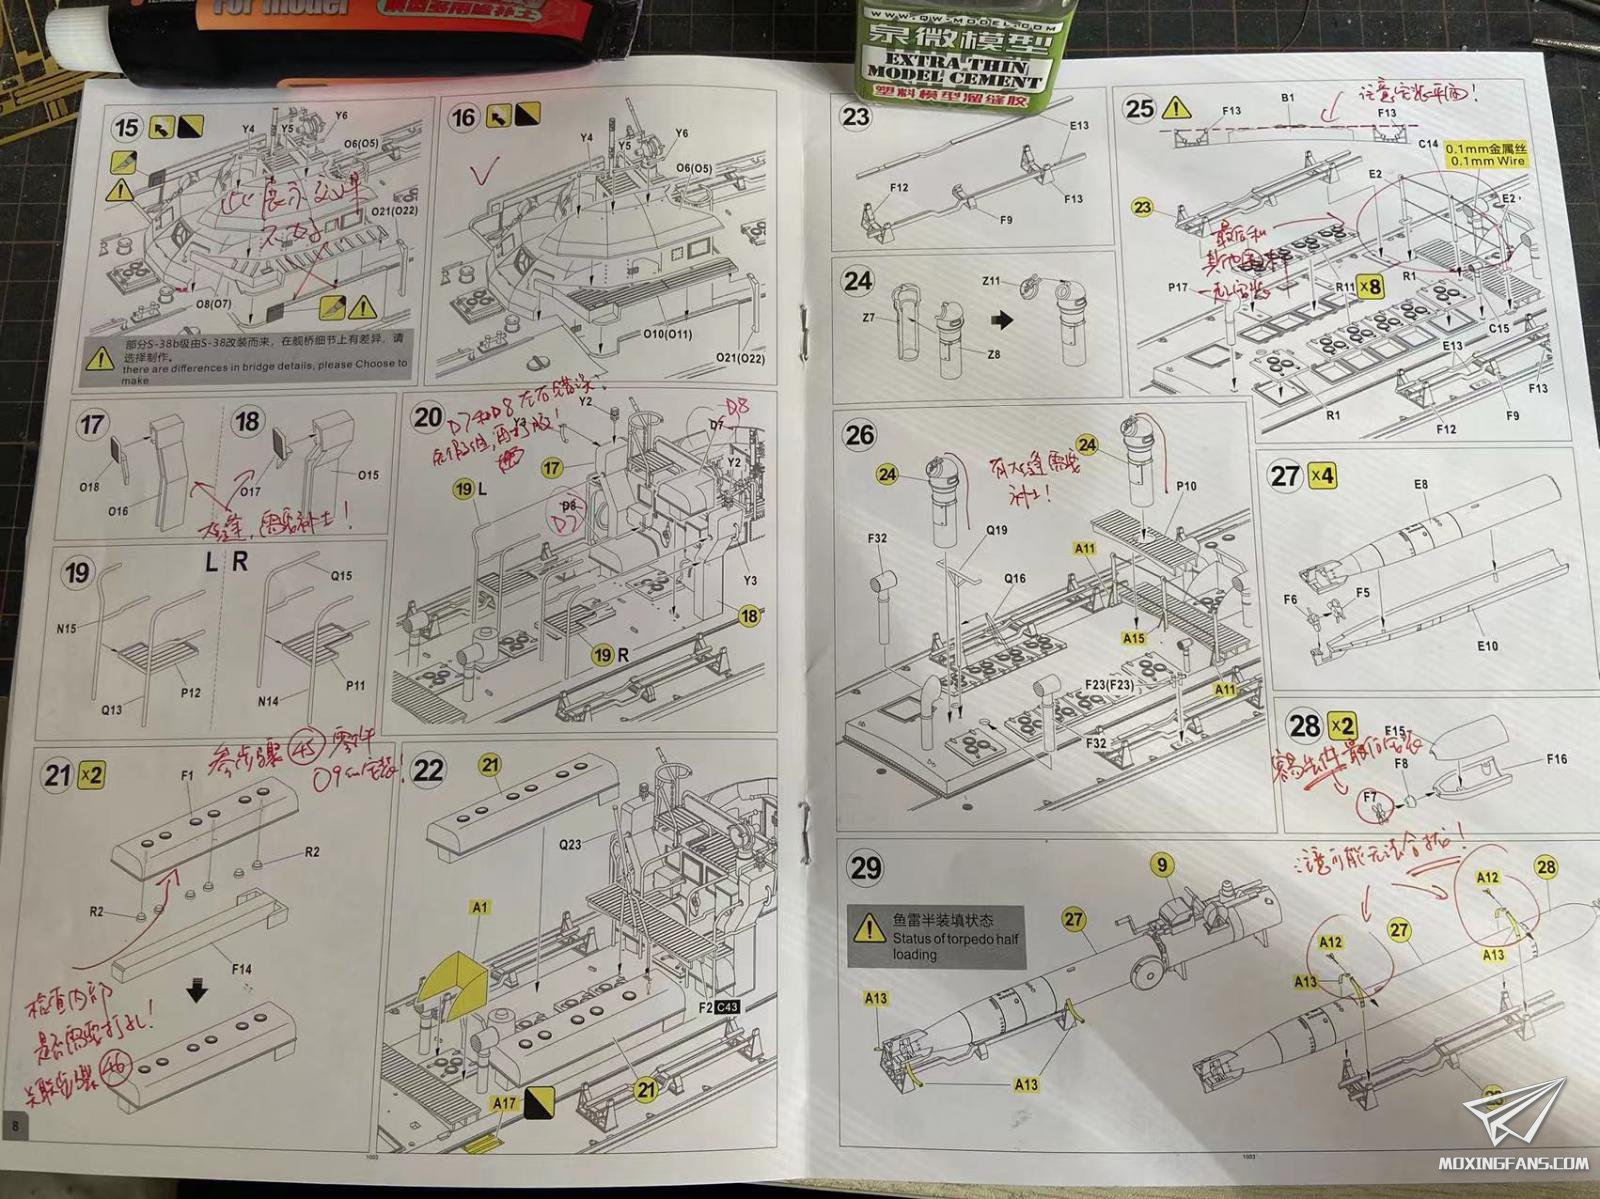 For model
WWW.QW-MODEL.COM
泉微模型
EXTRA THIN
MODEL CEMENT
塑料模型溜缝胶
15
Y4
Y5
Y6
O6(O5)
O21(O22)
此表示效果
不好
O8(O7)
部分S-38b级由S-38改装而来，在舰桥细节上有差异，请
选择制作。
there are differences in bridge details, please Choose to
make
16
Y4
Y5
Y6
O6(O5)
O10(O11)
O21(O22)
17
O18
O16
18
O17
O15
大缝，需要补土！
19
L R
N15
Q13
P12
Q15
N14
P11
20
D7和D8左右错误！
先假组，再打胶！
Y2
D8
17
19 L
D8
D7
Y2
Y3
18
19 R
21 x2
参步骤45零件
O9安装！
F1
R2
R2
F14
检查内部
是否需要打孔！
关联步骤46
22
21
Q23
A1
F2 C43
21
A17
8
1003
23
E13
F12
F9
F13
24
Z7
Z8
Z11
25
注意安装平面！
F13
B1
F13
C14
0.1mm金属丝
0.1mm Wire
E2
E2
23
最后和
P17
R11 x8
R1
C15
E13
F13
F9
F12
R1
26
24
有大缝需要
补土！
24
P10
F32
Q19
Q16
A11
A15
A11
F23(F23)
F32
27 x4
E8
F6
F5
E10
28 x2
E15
容易丢件最后安装
F8
F7
F16
29
注意可能无法合拢！
鱼雷半装填状态
Status of torpedo half
loading
9
27
A13
A13
A12
28
27
A12
A13
A13
MOXINGFANS.COM
1003